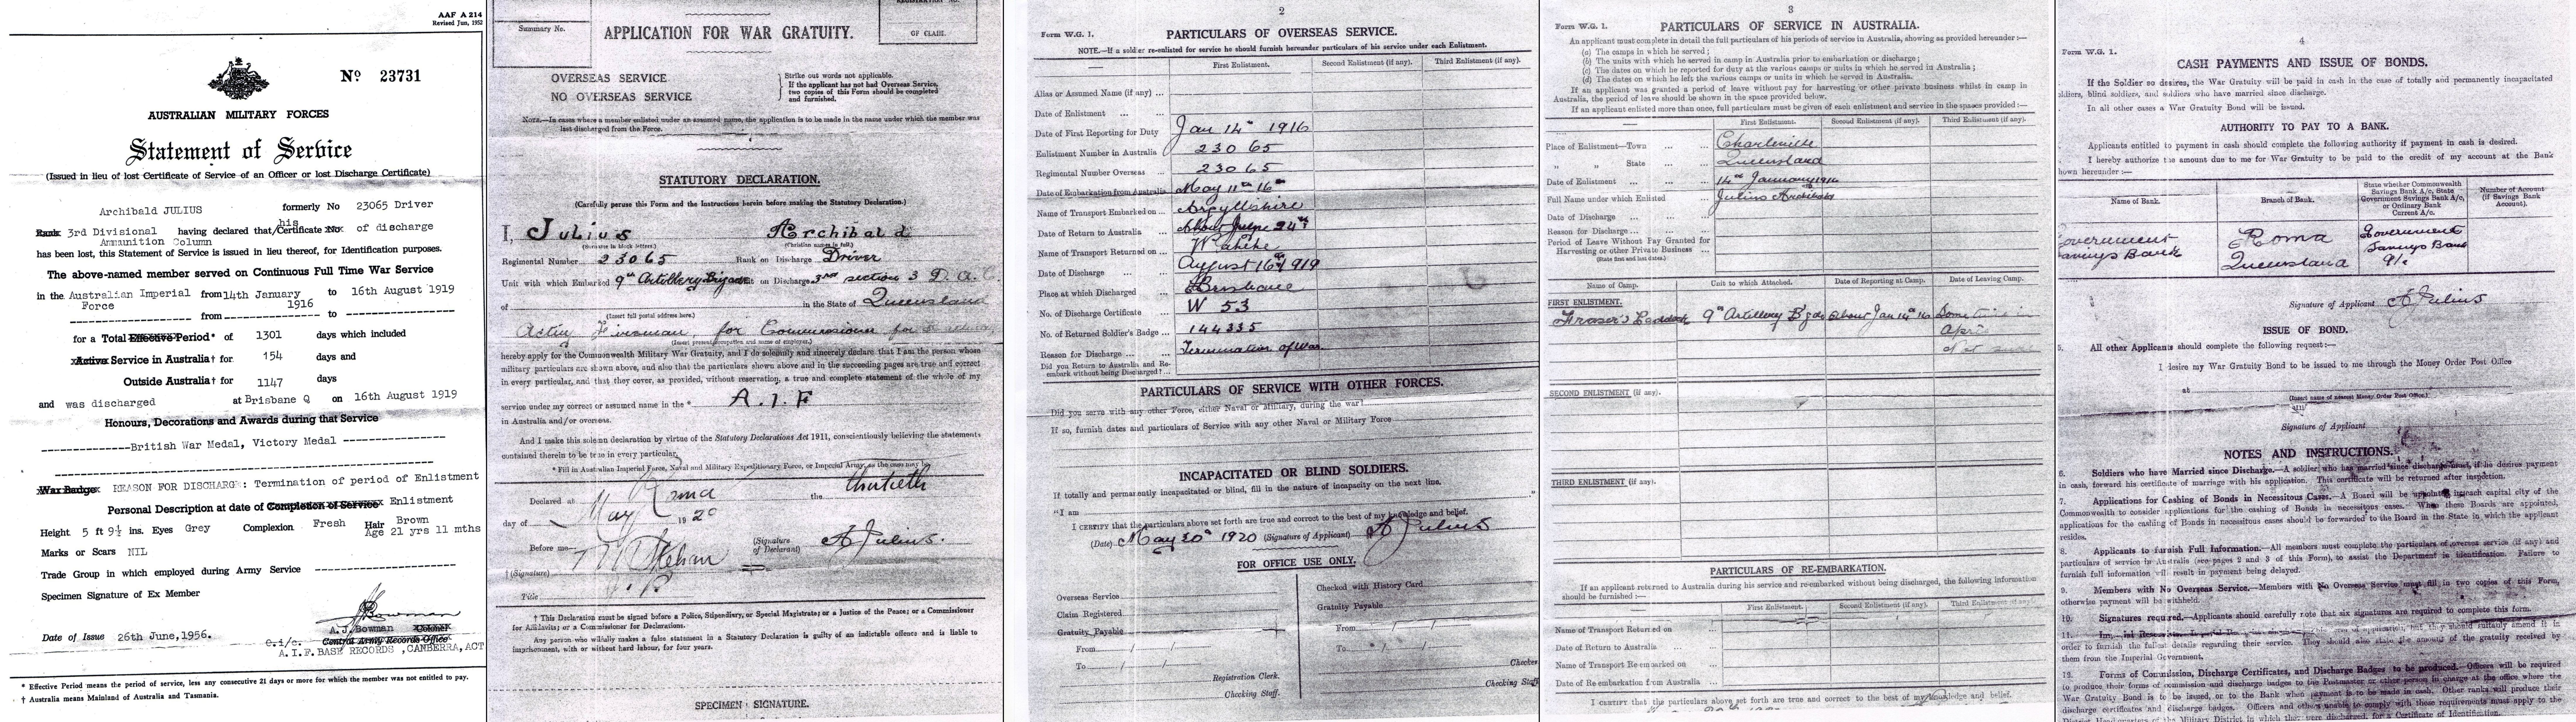 AAF A 214
Revised Jun, 1952
No 23731
AUSTRALIAN MILITARY FORCES
Statement of Service
(Issued in lieu of lost Certificate of Service of an Officer or lost Discharge Certificate)
Archibald JULIUS formerly No 23065 Driver
Rank 3rd Divisional having declared that his Certificate of discharge
Ammunition Column
has been lost, this Statement of Service is issued in lieu thereof, for Identification purposes.
The above-named member served on Continuous Full Time War Service
in the Australian Imperial from 14th January to 16th August 1919
Force 1916
from to
for a Total Effective Period* of 1301 days which included
Active Service in Australia† for 154 days and
Outside Australia† for 1147 days
and was discharged at Brisbane Q on 16th August 1919
Honours, Decorations and Awards during that Service
British War Medal, Victory Medal
War Badge REASON FOR DISCHARGE: Termination of period of Enlistment
Personal Description at date of Completion of Service Enlistment
Height 5 ft 9½ ins. Eyes Grey Complexion Fresh Hair Brown
Age 21 yrs 11 mths
Marks or Scars NIL
Trade Group in which employed during Army Service
Specimen Signature of Ex Member
A.J. Bowman Colonel
O.i/c. Central Army Records Office
Date of Issue 26th June, 1956.
A.I.F. BASE RECORDS, CANBERRA, ACT
* Effective Period means the period of service, less any consecutive 21 days or more for which the member was not entitled to pay.
† Australia means Mainland of Australia and Tasmania.
Summary No.
REGISTRATION No.
OF CLAIM.
APPLICATION FOR WAR GRATUITY.
OVERSEAS SERVICE
NO OVERSEAS SERVICE
Strike out words not applicable.
If the applicant has not had Overseas Service,
two copies of this Form should be completed
and furnished.
NOTE.—In cases where a member enlisted under an assumed name, the application is to be made in the name under which the member was
last discharged from the Force.
STATUTORY DECLARATION.
(Carefully peruse this Form and the Instructions herein before making the Statutory Declaration.)
I, Julius Archibald
(Surname in block letters.) (Christian names in full.)
Regimental Number 23065 Rank on Discharge Driver
Unit with which Embarked 9th Artillery Brigade Unit on Discharge 3rd section 3 D. A. C
of in the State of Queensland
(Insert full postal address here.)
Acting Fireman for Commissioner for
(Insert present occupation and name of employer.)
hereby apply for the Commonwealth Military War Gratuity, and I do solemnly and sincerely declare that I am the person whose
military particulars are shown above, and also that the particulars shown above and in the succeeding pages are true and correct
in every particular, and that they cover, as provided, without reservation, a true and complete statement of the whole of my
service under my correct or assumed name in the * A. I. F
in Australia and/or overseas.
And I make this solemn declaration by virtue of the Statutory Declarations Act 1911, conscientiously believing the statements
contained therein to be true in every particular.
* Fill in Australian Imperial Force, Naval and Military Expeditionary Force, or Imperial Army, as the case may be
Declared at Roma the thirtieth
day of May 1920
Before me— (Signature of Declarant) A Julius.
† (Signature)
Title J. P.
† This Declaration must be signed before a Police, Stipendiary, or Special Magistrate; or a Justice of the Peace; or a Commissioner
for Affidavits; or a Commissioner for Declarations.
Any person who wilfully makes a false statement in a Statutory Declaration is guilty of an indictable offence and is liable to
imprisonment, with or without hard labour, for four years.
SPECIMEN SIGNATURE.
2
Form W.G. 1.
PARTICULARS OF OVERSEAS SERVICE.
NOTE.—If a soldier re-enlisted for service he should furnish hereunder particulars of his service under each Enlistment.
First Enlistment. Second Enlistment (if any). Third Enlistment (if any).
Alias or Assumed Name (if any) ...
Date of Enlistment ... ...
Date of First Reporting for Duty Jan 14th 1916
Enlistment Number in Australia 23065
Regimental Number Overseas 23065
Date of Embarkation from Australia May 11th 16
Name of Transport Embarked on ... Argyllshire
Date of Return to Australia ... About June 24th
Name of Transport Returned on ...
Date of Discharge ... August 16th 1919
Place at which Discharged ... Brisbane
No. of Discharge Certificate ... W 53
No. of Returned Soldier's Badge ... 144335
Reason for Discharge ... Termination of War
Did you Return to Australia and Re-
embark without being Discharged? ...
PARTICULARS OF SERVICE WITH OTHER FORCES.
Did you serve with any other Force, either Naval or Military, during the war?
If so, furnish dates and particulars of Service with any other Naval or Military Force
INCAPACITATED OR BLIND SOLDIERS.
If totally and permanently incapacitated or blind, fill in the nature of incapacity on the next line.
"I am "
I CERTIFY that the particulars above set forth are true and correct to the best of my knowledge and belief.
(Date) May 30th 1920 (Signature of Applicant) A Julius
FOR OFFICE USE ONLY.
Overseas Service
Claim Registered
Gratuity Payable
From / /
To / /
Registration Clerk.
Checking Staff.
Checked with History Card
Gratuity Payable
From / /
To / /
Checker
Checking Staff
3
Form W.G. 1.
PARTICULARS OF SERVICE IN AUSTRALIA.
An applicant must complete in detail the full particulars of his periods of service in Australia, showing as provided hereunder:—
(a) The camps in which he served;
(b) The units with which he served in camp in Australia prior to embarkation or discharge;
(c) The dates on which he reported for duty at the various camps or units in which he served in Australia;
(d) The dates on which he left the various camps or units in which he served in Australia.
If an applicant was granted a period of leave without pay for harvesting or other private business whilst in camp in
Australia, the period of leave should be shown in the space provided below.
If an applicant enlisted more than once, full particulars must be given of each enlistment and service in the spaces provided:—
First Enlistment. Second Enlistment (if any). Third Enlistment (if any).
Place of Enlistment—Town ... ... Charleville
„ „ State ... ... Queensland
Date of Enlistment ... ... 14th January 1916
Full Name under which Enlisted ... Julius Archibald
Date of Discharge ... ...
Reason for Discharge ... ...
Period of Leave Without Pay Granted for
Harvesting or other Private Business ...
(State first and last dates.)
Name of Camp. Unit to which Attached. Date of Reporting at Camp. Date of Leaving Camp.
FIRST ENLISTMENT.
Fraser's Paddock 9th Artillery Bgde About Jan 14th 16 Sometime in
April
SECOND ENLISTMENT (if any).
THIRD ENLISTMENT (if any).
PARTICULARS OF RE-EMBARKATION.
If an applicant returned to Australia during his service and re-embarked without being discharged, the following information
should be furnished:—
First Enlistment. Second Enlistment (if any). Third Enlistment (if any).
Name of Transport Returned on ...
Date of Return to Australia ...
Name of Transport Re-embarked on ...
Date of Re-embarkation from Australia ...
I CERTIFY that the particulars above set forth are true and correct to the best of my knowledge and belief.
4
Form W.G. 1.
CASH PAYMENTS AND ISSUE OF BONDS.
If the Soldier so desires, the War Gratuity will be paid in cash in the case of totally and permanently incapacitated
soldiers, blind soldiers, and soldiers who have married since discharge.
In all other cases a War Gratuity Bond will be issued.
AUTHORITY TO PAY TO A BANK.
Applicants entitled to payment in cash should complete the following authority if payment in cash is desired.
I hereby authorize the amount due to me for War Gratuity to be paid to the credit of my account at the Bank
hown hereunder:—
Name of Bank. Branch of Bank. State whether Commonwealth Savings Bank A/c, State Government Savings Bank A/c, or Ordinary Bank Current A/c. Number of Account (if Savings Bank Account).
overnment Savings Bank Roma Queensland Government Savings Bank A/c
Signature of Applicant A Julius
ISSUE OF BOND.
5. All other Applicants should complete the following request:—
I desire my War Gratuity Bond to be issued to me through the Money Order Post Office
at
(Insert name of nearest Money Order Post Office)
Signature of Applicant
NOTES AND INSTRUCTIONS.
6. Soldiers who have Married since Discharge.—A soldier who has married since discharge must, if he desires payment
in cash, forward his certificate of marriage with his application. This certificate will be returned after inspection.
7. Applications for Cashing of Bonds in Necessitous Cases.—A Board will be appointed in each capital city of the
Commonwealth to consider applications for the cashing of Bonds in necessitous cases. When these Boards are appointed,
applications for the cashing of Bonds in necessitous cases should be forwarded to the Board in the State in which the applicant
resides.
8. Applicants to furnish Full Information.—All members must complete the particulars of overseas service (if any) and
particulars of service in Australia (see pages 2 and 3 of this Form), to assist the Department in identification. Failure to
furnish full information will result in payment being delayed.
9. Members with No Overseas Service.—Members with No Overseas Service must fill in two copies of this Form,
otherwise payment will be withheld.
10. Signatures required.—Applicants should carefully note that six signatures are required to complete this form.
11. of application, but they should suitably amend it in
order to furnish the fullest details regarding their service. They should also state the amount of the gratuity received by
them from the Imperial Government.
12. Forms of Commission, Discharge Certificates, and Discharge Badges to be produced.—Officers will be required
to produce their forms of commission and discharge badges to the Postmaster or other person in charge at the office where the
War Gratuity Bond is to be issued, or to the Bank when payment is to be made in cash. Other ranks will produce their
discharge certificates and discharge badges. Officers and others unable to comply with these requirements must apply to the
District Headquarters of the Military District in which they were discharged, for a Certificate of Identification.